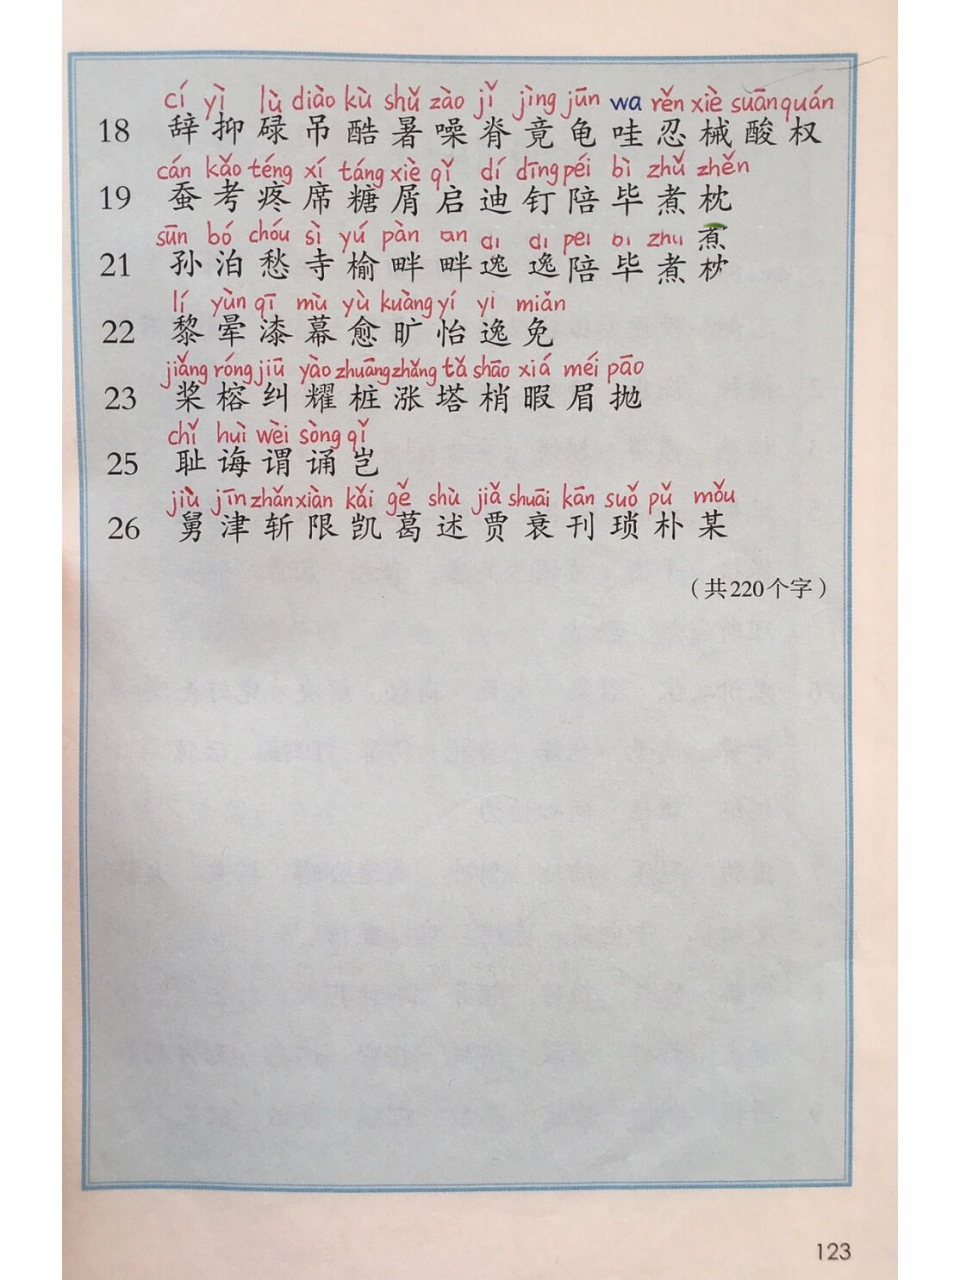 cí yì lù diào kù shǔ zào jǐ jìng jūn wa rěn xiè suān quán
18 辞 抑 碌 吊 酷 暑 噪 脊 竟 龟 哇 忍 械 酸 权
cán kǎo téng xí táng xiè qǐ dí dīng péi bì zhǔ zhěn
19 蚕 考 疼 席 糖 屑 启 迪 钉 陪 毕 煮 枕
sūn bó chóu sì yú pàn
21 孙 泊 愁 寺 榆 畔 畔 逸 逸 陪 毕 煮
lí yùn qī mù yù kuàng yí yi miǎn
22 黎 晕 漆 幕 愈 旷 怡 逸 免
jiǎng róng jiū yào zhuāng zhǎng tǎ shāo xiá méi pāo
23 桨 榕 纠 耀 桩 涨 塔 梢 暇 眉 抛
chǐ huì wèi sòng qǐ
25 耻 诲 谓 诵 岂
jiù jīn zhǎn xiàn kǎi gě shù jiǎ shuāi kān suǒ pǔ mǒu
26 舅 津 斩 限 凯 葛 述 贾 衰 刊 琐 朴 某
（共220个字）
123